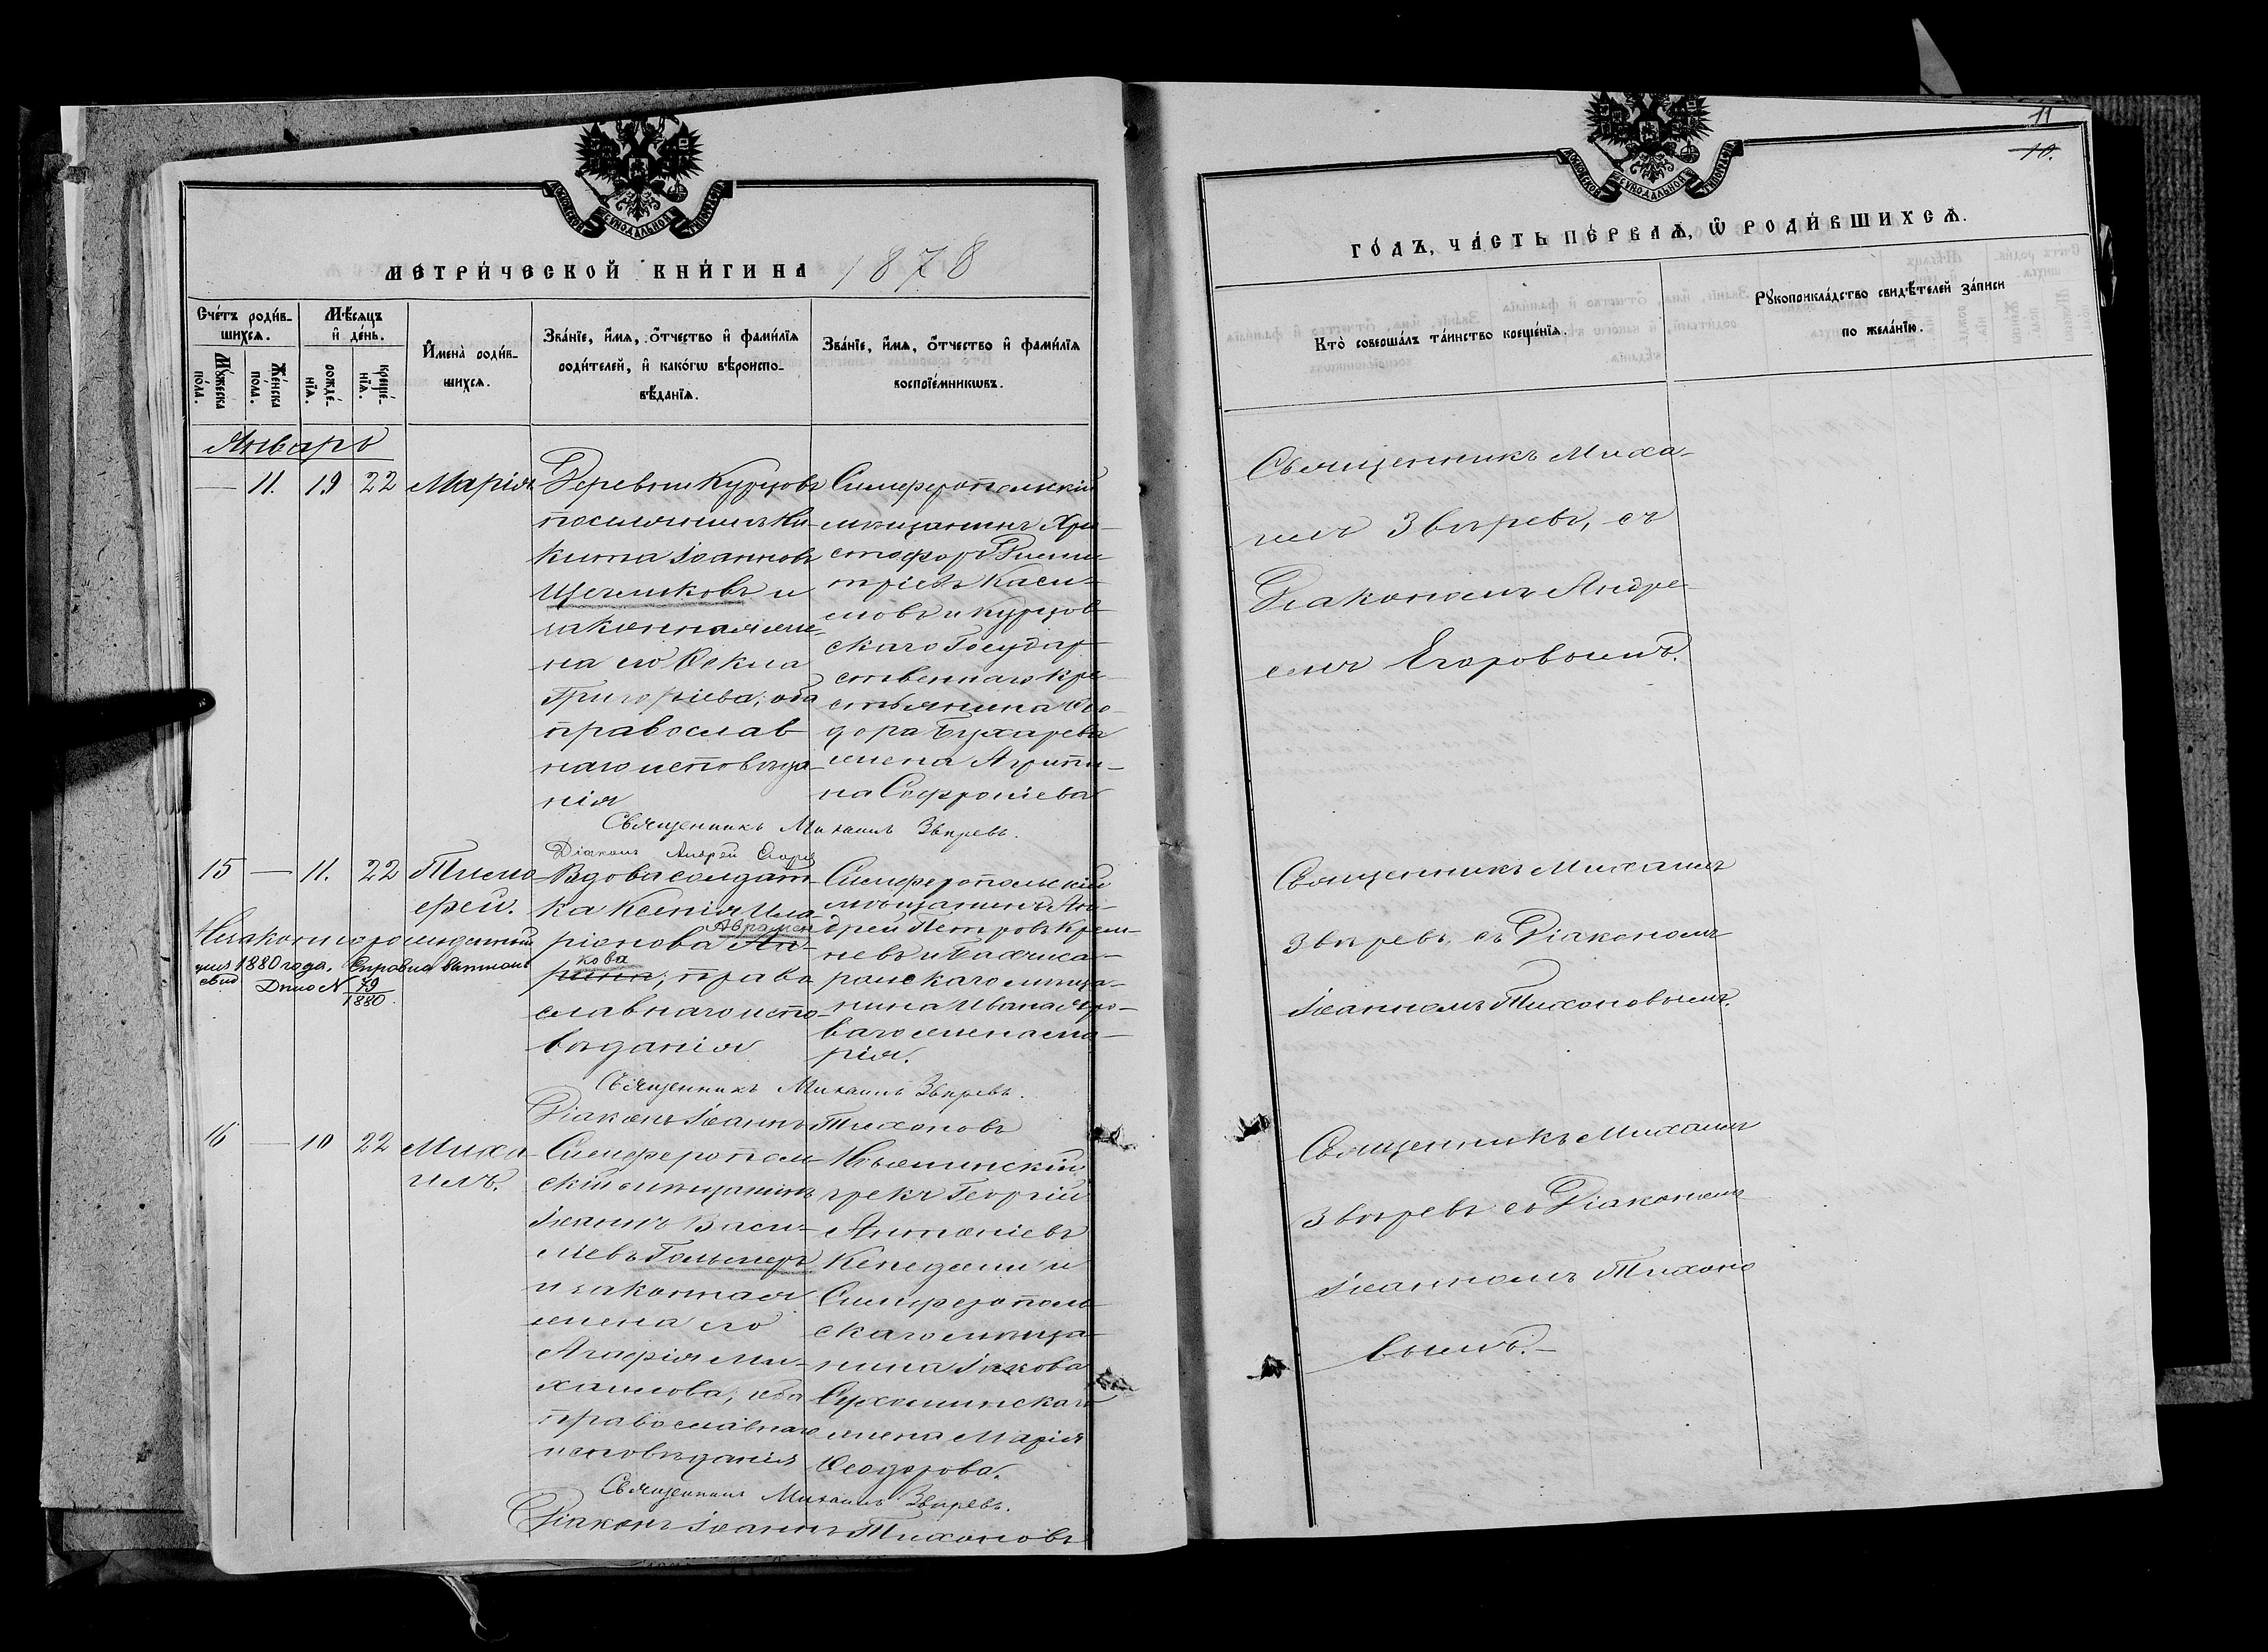 МОСКОВСКОЙ СѴНОДАЛЬНОЙ ТИПОГРАФІИ
МЕТРИ́ЧЕСКОЙ КНИ́ГИ НА 1878
Сче́тъ роди́в-
шихсѧ.
Мѣ́сѧцъ
и҆ де́нь.
Мꙋ́жеска
по́ла.
Же́нска
по́ла.
рожде́-
нїѧ.
креще́-
нїѧ.
И҆мена̀ роди́в-
шихсѧ.
Зва́нїе, и҆́мѧ, ѻ҆́тчество и҆ фами́лїѧ
роди́телей, и҆ како́гѡ вѣроиспо-
вѣ́данїѧ.
Зва́нїе, и҆́мѧ, ѻ҆́тчество и҆ фами́лїѧ
воспрїе́мникѡвъ.
Январь
— 11. 19 22 Марія
Деревни Курцовъ
поселянинъ Ни-
кита Іоанновъ
Щегликовъ и
законная же-
на его Ѳекла
Григоріева, оба
православ
наго исповѣда-
нія
Симферопольскій
мѣщанинъ Хри-
стофоръ Дими-
тріевъ Каси-
мовъ и курцов-
скаго Государ-
ственнаго кре-
стьянина Ѳео-
дора Бухарева
жена Агрипи-
на Софроніева
Священникъ Михаилъ Звѣревъ.
Діаконъ Андрей Егоровъ
15 — 11. 22 Тимо
ѳей.
Незаконнорожденный
1880 года. Справка
Дѣло № 79
1880.
Вдова солдат-
ка Ксенія Ила-
ріонова
Аврамен
кова
, право
славнаго испо-
вѣданія
Симферопольскій
мѣщанинъ Ан-
дрей Петровъ Крем-
невъ и Бахчиса-
райскаго мѣща-
нина Ивана Яро-
ваго жена Ма-
рія.
Священникъ Михаилъ Звѣревъ.
Діаконъ Іоаннъ Тихоновъ
16 — 10 22 Миха-
илъ.
Симферополь-
скій мѣщанинъ
Іоаннъ Васи-
ліевъ Гольмеръ
и законная
жена его
Агафія Ми-
хаилова, оба
православнаго
исповѣданія
Нѣжинскій
грекъ Георгій
Антоніевъ
и
Симферополь-
скаго мѣща-
нина Іакова
Сухомлинскаго
жена Марія
Ѳеодорова.
Священникъ Михаилъ Звѣревъ.
Діаконъ Іоаннъ Тихоновъ
11
10.
МОСКОВСКОЙ СѴНОДАЛЬНОЙ ТИПОГРАФІИ
ГО́ДЪ, ЧА́СТЬ ПЕ́РВАѦ, Ѽ РОДИ́ВШИХСѦ.
Кто̀ соверша́лъ та́инство креще́нїѧ.
Рꙋкоприкла́дство свидѣ́телей за́писи
по жела́нїю.
Священникъ Миха-
илъ Звѣревъ, съ
Діакономъ Андре-
емъ Егоровымъ.
Священникъ Михаилъ
Звѣревъ, съ Діакономъ
Іоанномъ Тихоновымъ.
Священникъ Михаилъ
Звѣревъ съ Діакономъ
Іоанномъ Тихоно
вымъ.—